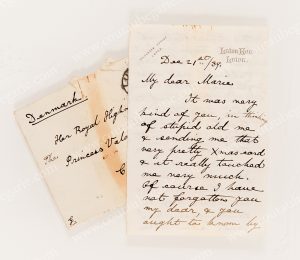 Denmark
Her Royal High
The
Princess Val
E
Luton Hoo,
Luton.
Dec 21st/39.
My dear Marie
It was very
kind of you, in thinking
of stupid old me
& sending me that
very pretty Xmas card
& it really touched
me very much.
Of course I have
not forgotten you
my dear, & you
ought to know by